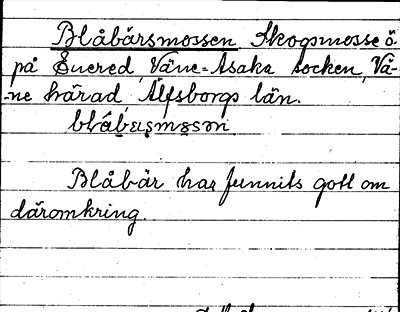 Blåbärsmossen Skogsmosse ö.
på Enered, Väne-Åsaka socken, Vä-
-ne härad, Älfsborgs län.
Blåbär har funnits gott om
däromkring.